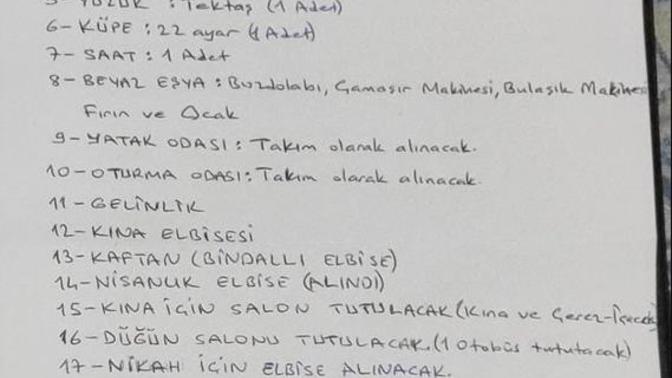 5- YÜZÜK : Tektaş (1 Adet)
6- KÜPE : 22 ayar (1 Adet)
7- SAAT : 1 Adet
8- BEYAZ EŞYA : Buzdolabı, Çamaşır Makinesi, Bulaşık Makinesi
Fırın ve Ocak
9- YATAK ODASI : Takım olarak alınacak.
10- OTURMA ODASI : Takım olarak alınacak.
11- GELİNLİK
12- KINA ELBİSESİ
13- KAFTAN (BİNDALLI ELBİSE)
14- NİŞANLIK ELBİSE (ALINDI)
15- KINA İÇİN SALON TUTULACAK (Kına ve Çerez-İçecek)
16- DÜĞÜN SALONU TUTULACAK. (1 Otobüs tutulacak)
17- NİKAH İÇİN ELBİSE ALINACAK.